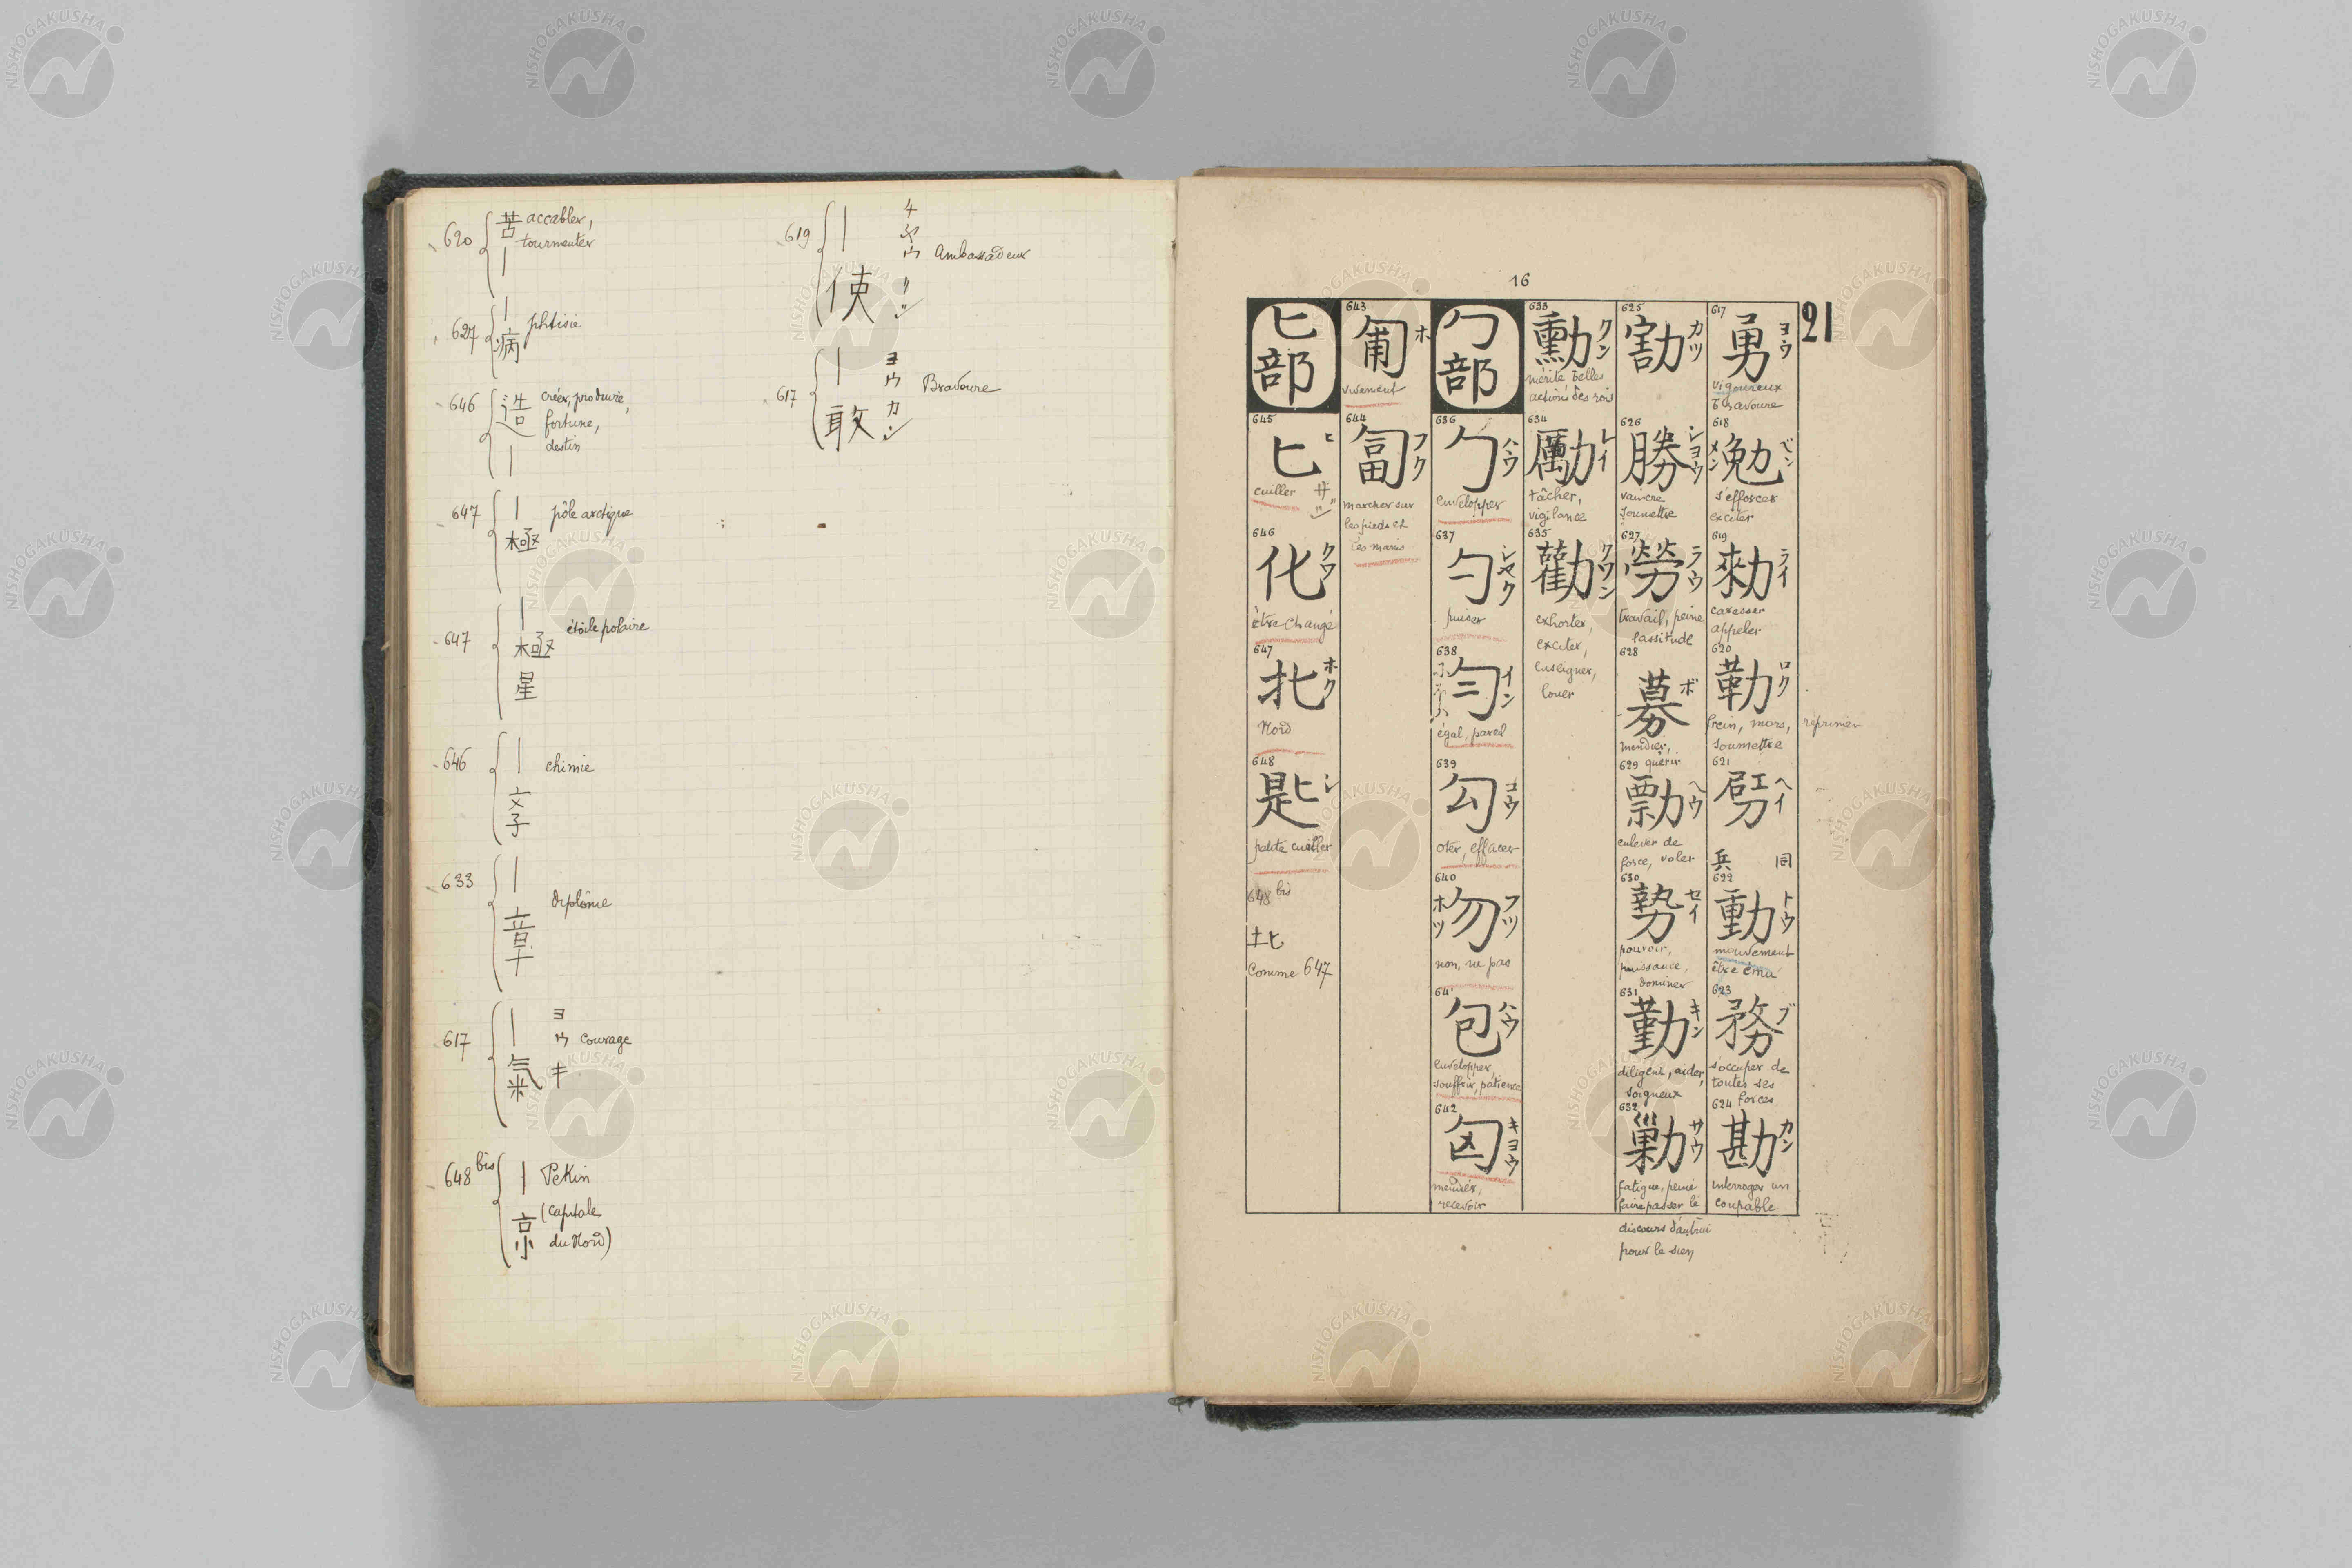 620 苦 accabler,
tourmenter
|
627 | phtisie
病
646 造 créer, produire,
fortune,
destin
|
647 | pôle arctique
極
647 | étoile polaire
極
星
646 | chimie
孝
633 | diplôme
章
617 | ヨウキ courage
氣
648 bis | Pekin
京 (capitale
du Nord)
619 | Ambassadeur
使
617 | ヨウカン Bravoure
敢
16
21
617
勇 ヨウ
vigoureux
bravoure
618
勉 ベン メン
s'efforcer
exciter
619
勑 ライ
caresser
appeler
620
勒 ロク
frein, mors, réprimer
soumettre
621
劈 ヘイ
兵 同
622
動 トウ
mouvement
être ému
623
務 ブ
s'occuper de
toutes ses
forces
624
勘 カン
interroger un
coupable
625
割 カツ
626
勝 シヨウ
vaincre
soumettre
627
勞 ラウ
travail, peine
lassitude
628
募 ボ
mendier,
quérir
629
勡 ヘウ
enlever de
force, voler
630
勢 セイ
pouvoir,
puissance,
dominer
631
勤 キン
diligent, aider,
soigneux
632
勦 サウ
fatigue, peine
faire passer le
discours d'autrui
pour le sien
633
勳 クン
mérite belles
actions des rois
634
勵 レイ
tâcher,
vigilance
635
勸 クワン
exhorter,
exciter,
enseigner,
louer
勹部
636
勹 ハウ
envelopper
637
勺 シヤク
puiser
638
匀 イン
égal, pareil
639
勾 コウ
oter, effacer
640
勿 フツ ホツ
non, ne pas
641
包 ハウ
envelopper,
souffrir, patience
642
匈 キヨウ
mendier,
recevoir
643
匍 ホ
vivement
644
匐 フク
marcher sur
les pieds et
les mains
匕部
645
匕 ヒ
cuiller サジ
646
化 クワ
être changé
647
北 ホク
Nord
648
匙 シ
petite cuiller
648 bis
北
Comme 647
NISHOGAKUSHA